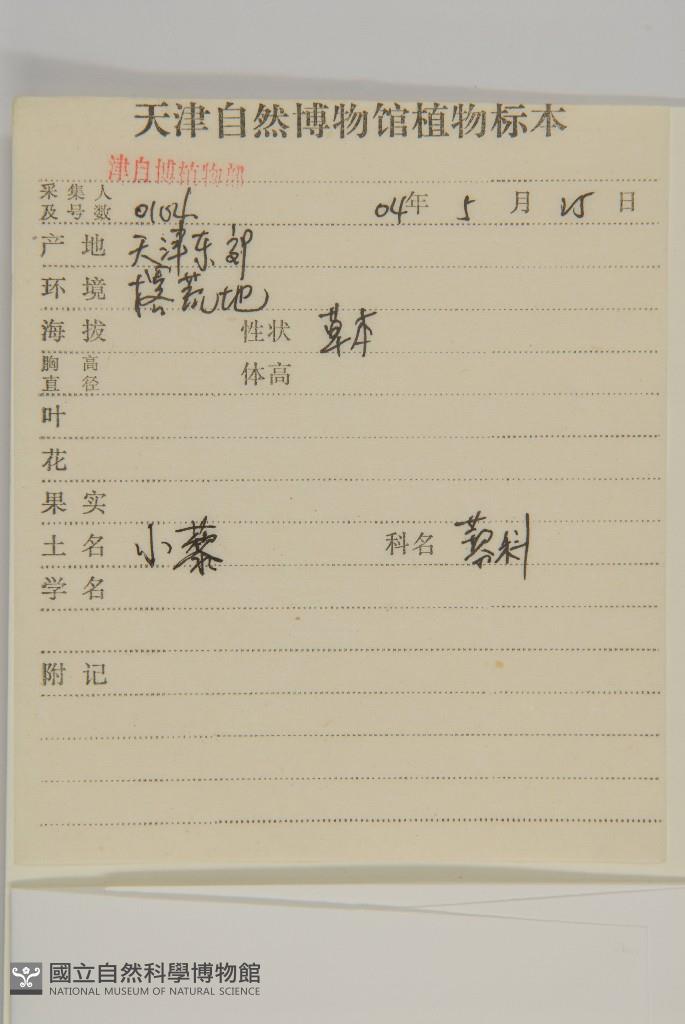 天津自然博物馆植物标本
津自博植物部
采集人及号数 0104 04年 5 月 25 日
产地 天津东郊
环境 撂荒地
海拔 性状 草本
胸高直径 体高
叶
花
果实
土名 小藜 科名 藜科
学名
附记
國立自然科學博物館
NATIONAL MUSEUM OF NATURAL SCIENCE